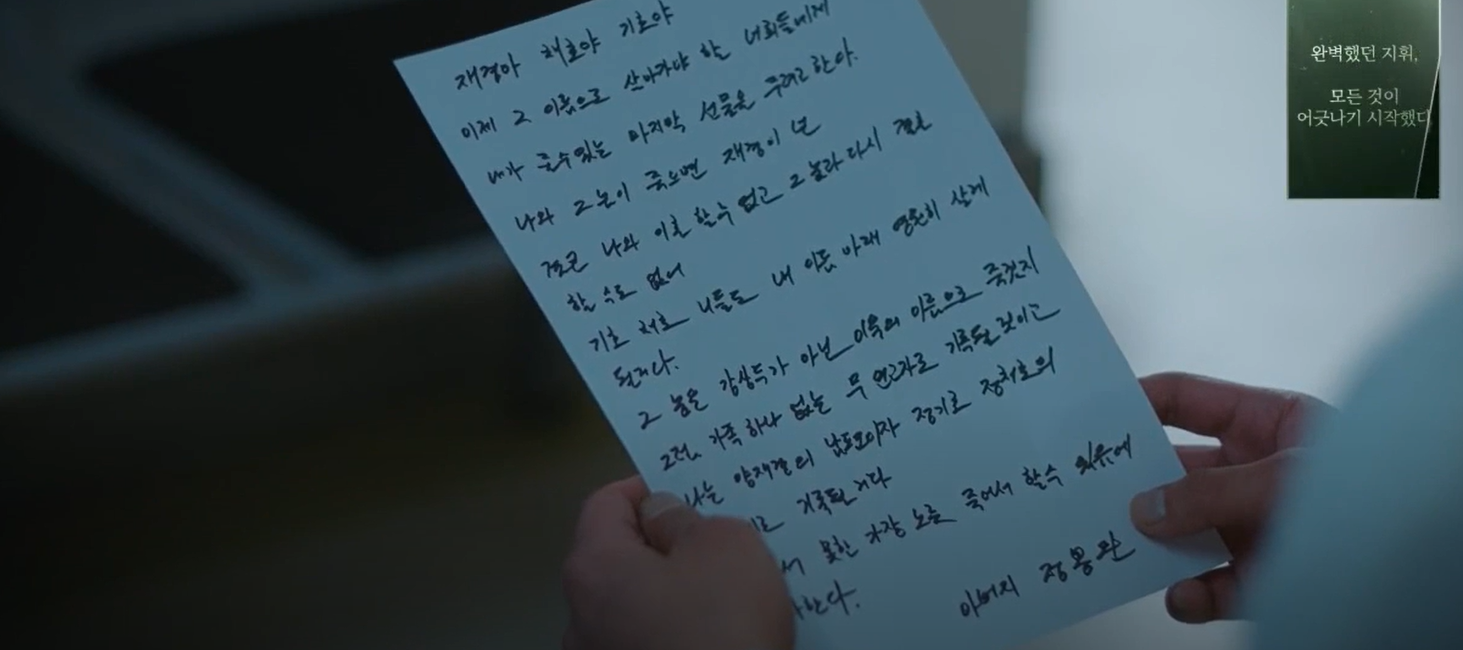 재경아 채호야 기호야
이제 그 이름으로 살아가야 할 너희들에게
내가 줄수있는 마지막 선물을 주려고 한다.
나와 그 놈이 죽으면 재경이 넌
결코 나와 이혼 할수 없고 그 놈과 다시 결혼
할 수도 없어
기호 채호 니들도 내 이름 아래 영원히 살게
될거다.
그 놈은 강상득가 아닌 이욱의 이름으로 죽겠지
그건 가족 하나 없는 무 연고자로 기록될 것이고
나는 양재경의 남편이자 정기호 정채호의
기록될 거다
못한 가장 노릇 죽어서 할수 있음에
한다.
아버지 정용완
완벽했던 지휘,
모든 것이
어긋나기 시작했다